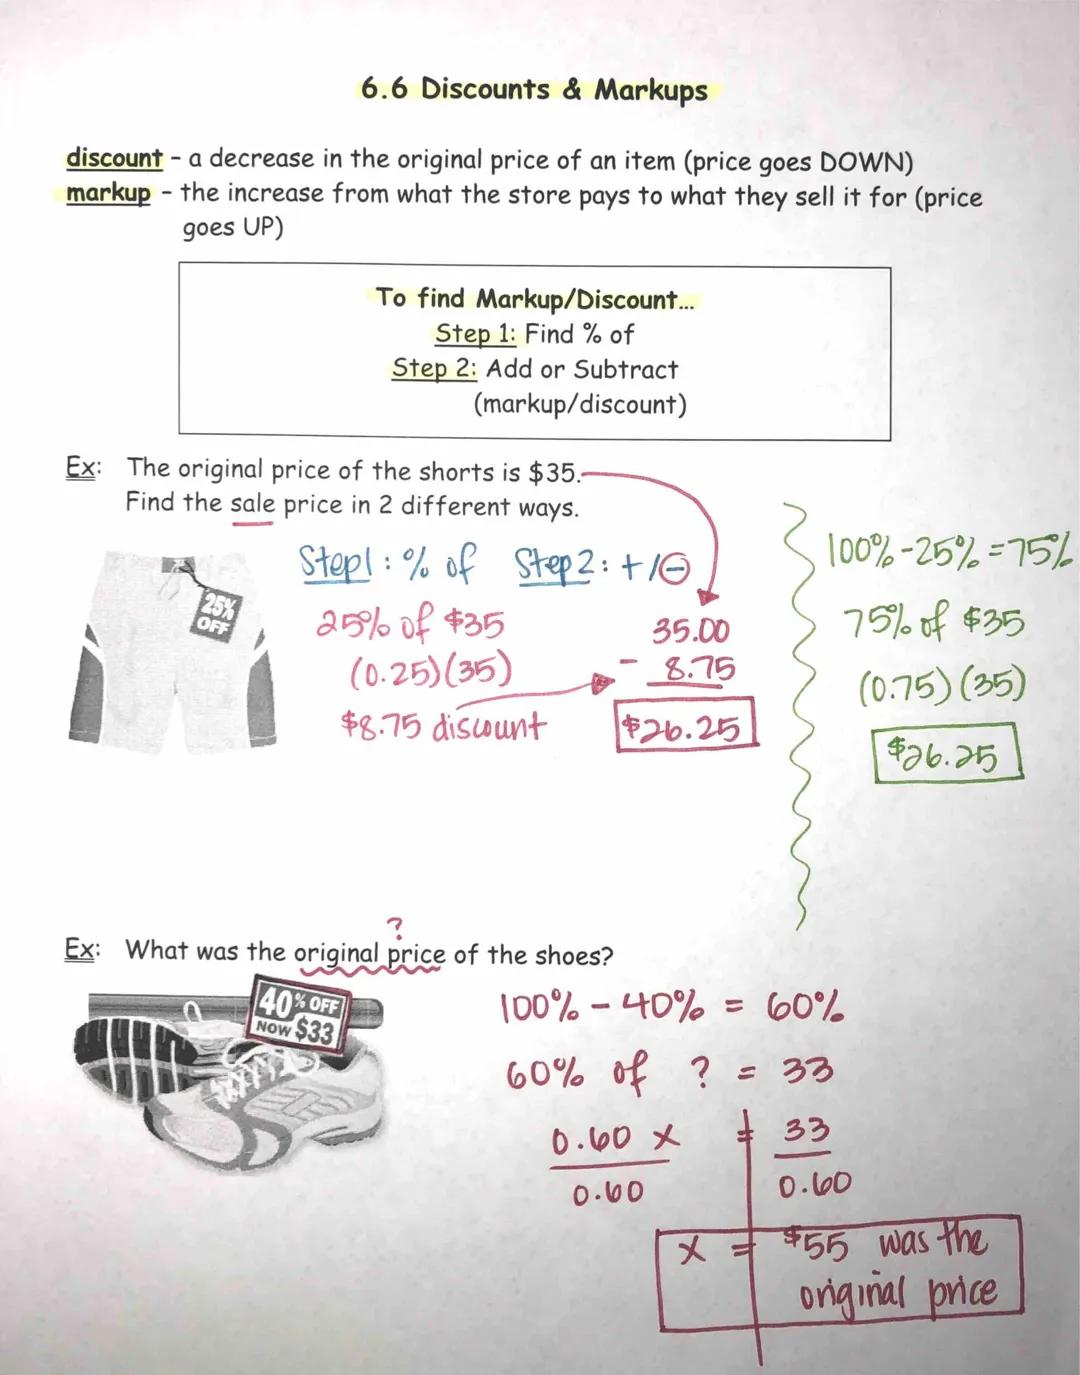 6.6 Discounts & Markups
discount - a decrease in the original price of an item (price goes DOWN)
markup - the increase from what the store pays to what they sell it for (price
goes UP)
To find Markup/Discount...
Step 1: Find % of
Step 2: Add or Subtract
(markup/discount)
Ex: The original price of the shorts is $35.
Find the sale price in 2 different ways.
25%
OFF
Step1: % of
25% of $35
(0.25)(35)
$8.75 discount
Step 2: +/-
35.00
- 8.75
$26.25
100%-25%=75%
75% of $35
(0.75)(35)
$26.25
?
Ex: What was the original price of the shoes?
40% OFF
NOW $33
100% - 40% = 60%
60% of ? = 33
0.60 x = 33
0.60 0.60
x = $55 was the
original price